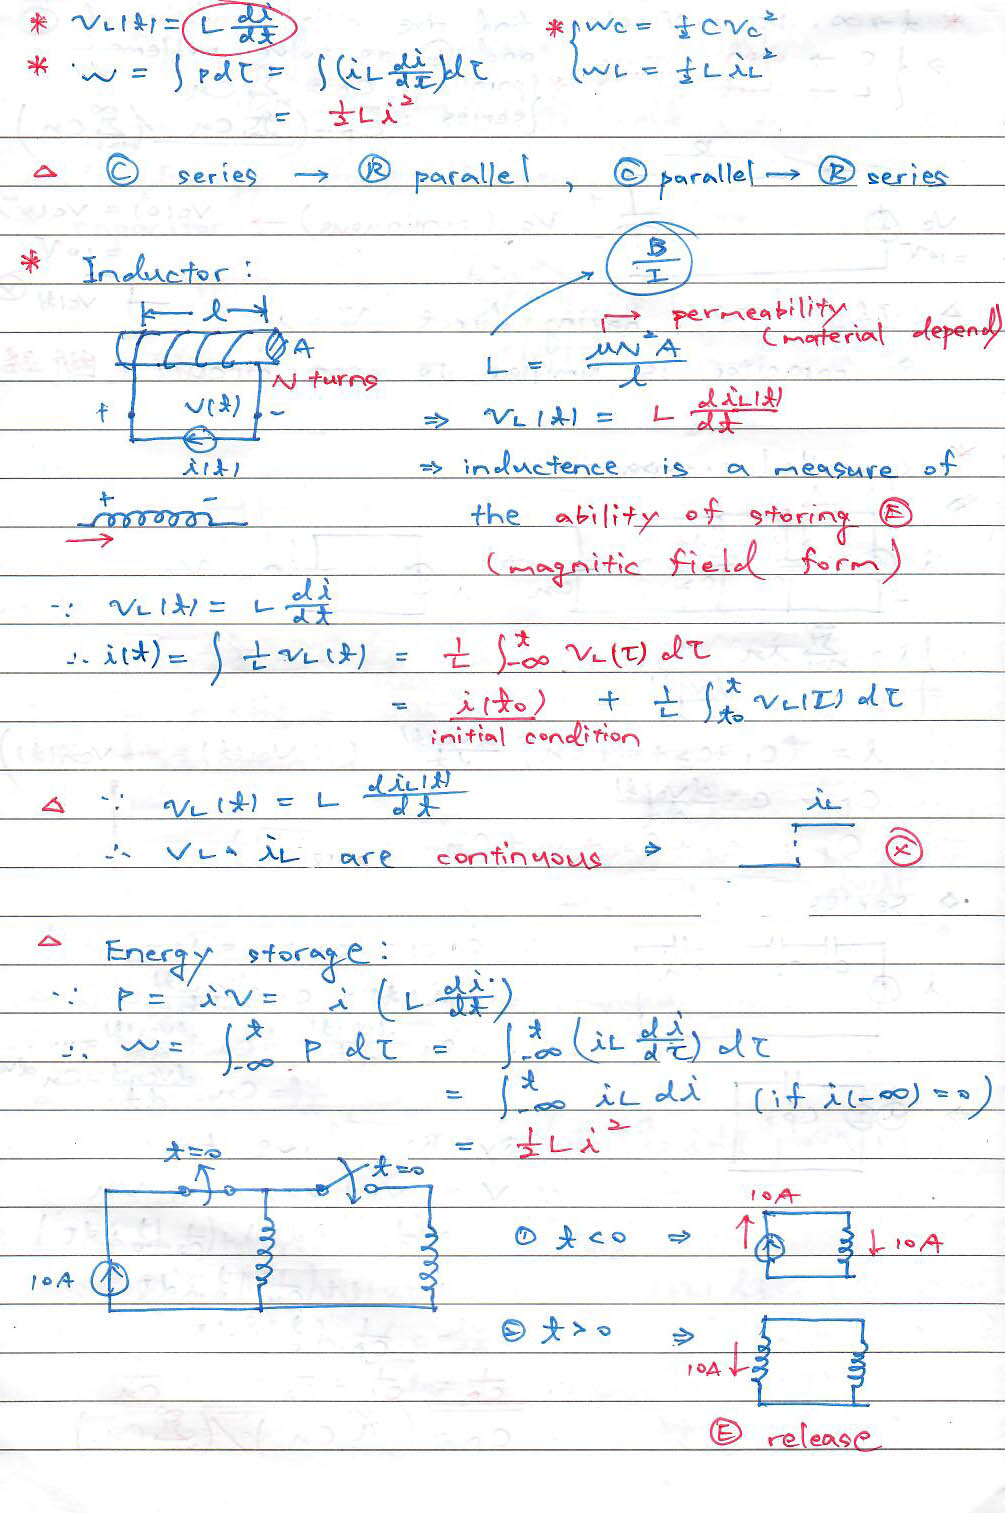 * VL(t) = L di/dt
* { Wc = ½CVc²
WL = ½LiL²
* w = ∫ pdτ = ∫(iL di/dτ)dτ
= ½Li²
△ Ⓒ series → Ⓡ parallel , Ⓒ parallel → Ⓡ series
* Inductor :
B/I
l
A
N turns
+ V(t) -
i(t)
+ -
→ permeability
(material depend)
L = μN²A / l
⇒ VL(t) = L diL(t)/dt
⇒ inductence is a measure of
the ability of storing Ⓔ
(magnitic field form)
∵ VL(t) = L di/dt
∴ i(t) = ∫ 1/L VL(t) = 1/L ∫_-∞^t VL(τ) dτ
= i(t0) + 1/L ∫_t0^t VL(τ) dτ
initial condition
△ ∵ VL(t) = L diL(t)/dt
∴ VL、iL are continuous ⇒
iL
Ⓧ
△ Energy storage :
∵ P = iV = i (L di/dt)
∴ w = ∫_-∞^t P dτ = ∫_-∞^t (iL di/dτ) dτ
= ∫_-∞^t iL di (if i(-∞) = 0)
= ½Li²
t=0
t=0
10A
① t<0 ⇒
10A
10A
② t>0 ⇒
10A
Ⓔ release